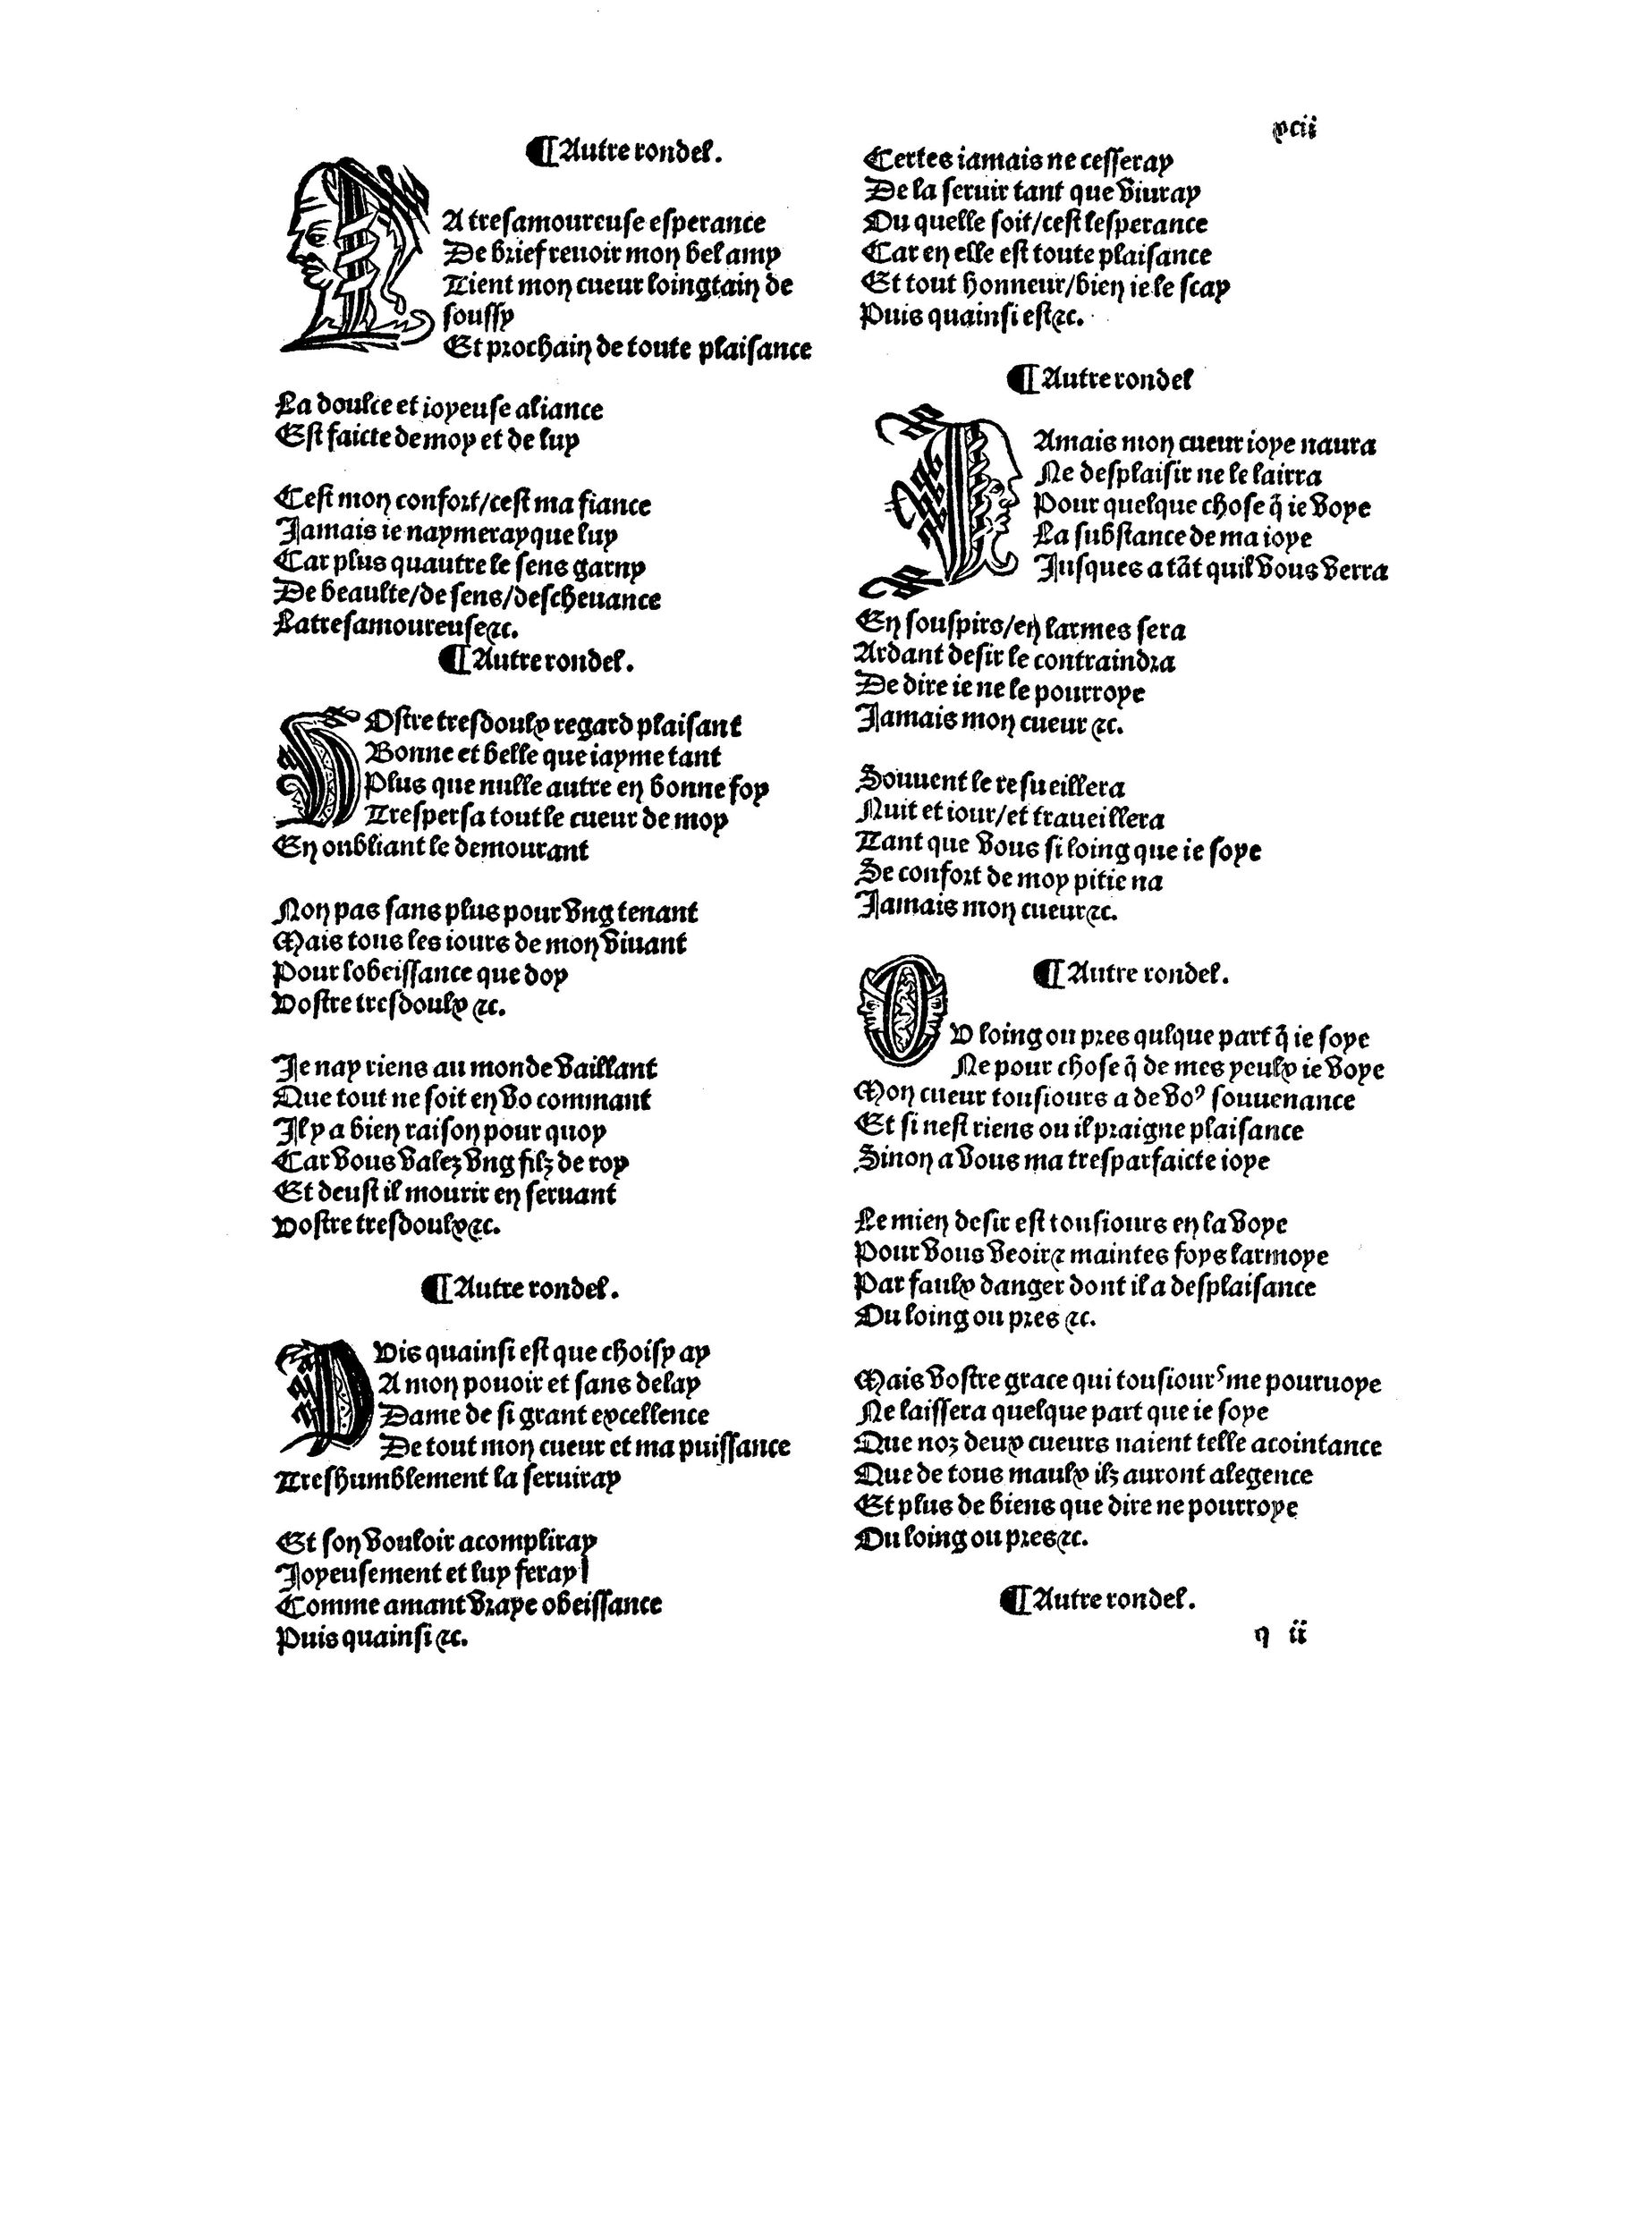 xcii
¶Autre rondel.
LA tresamoureuse esperance
De brief reuoir mon bel amy
Tient mon cueur loingtain de
soussy
Et prochain de toute plaisance
La doulce et ioyeuse aliance
Est faicte de moy et de luy
Cest mon confort/cest ma fiance
Jamais ie naymeray que luy
Car plus quautre le sens garny
De beaulte/de sens/descheuance
La tresamoureuse⁊c.
¶Autre rondel.
VOstre tresdoulx regard plaisant
Bonne et belle que iayme tant
Plus que nulle autre en bonne foy
Trespersa tout le cueur de moy
En oubliant le demourant
Non pas sans plus pour vng tenant
Mais tous les iours de mon viuant
Pour lobeissance que doy
Vostre tresdoulx ⁊c.
Je nay riens au monde vaillant
Que tout ne soit en vo commant
Il y a bien raison pour quoy
Car vous valez vng filz de roy
Et deust il mourir en seruant
Vostre tresdoulx⁊c.
¶Autre rondel.
PVis quainsi est que choisy ay
A mon pouoir et sans delay
Dame de si grant excellence
De tout mon cueur et ma puissance
Treshumblement la seruiray
Et son vouloir acompliray
Joyeusement et luy feray
Comme amant vraye obeissance
Puis quainsi ⁊c.
Certes iamais ne cesseray
De la seruir tant que viuray
Ou quelle soit/cest lesperance
Car en elle est toute plaisance
Et tout honneur/bien ie le scay
Puis quainsi est⁊c.
¶Autre rondel
IAmais mon cueur ioye naura
Ne desplaisir ne le lairra
Pour quelque chose q̃ ie voye
La substance de ma ioye
Jusques a tãt quil vous verra
En souspirs/en larmes sera
Ardant desir le contraindra
De dire ie ne le pourroye
Jamais mon cueur ⁊c.
Souuent le resueillera
Nuit et iour/et traueillera
Tant que vous si loing que ie soye
Se confort de moy pitie na
Jamais mon cueur⁊c.
¶Autre rondel.
OV loing ou pres qulque part q̃ ie soye
Ne pour chose q̃ de mes yeulx ie voye
Mon cueur tousiours a de voꝰ souuenance
Et si nest riens ou il praigne plaisance
Sinon a vous ma tresparfaicte ioye
Le mien desir est tousiours en la voye
Pour vous veoir⁊ maintes foys larmoye
Par faulx danger dont il a desplaisance
Ou loing ou pres ⁊c.
Mais vostre grace qui tousiourˢ me pouruoye
Ne laissera quelque part que ie soye
Que noz deux cueurs naient telle acointance
Que de tous maulx ilz auront alegence
Et plus de biens que dire ne pourroye
Ou loing ou pres⁊c.
¶Autre rondel.
q ii